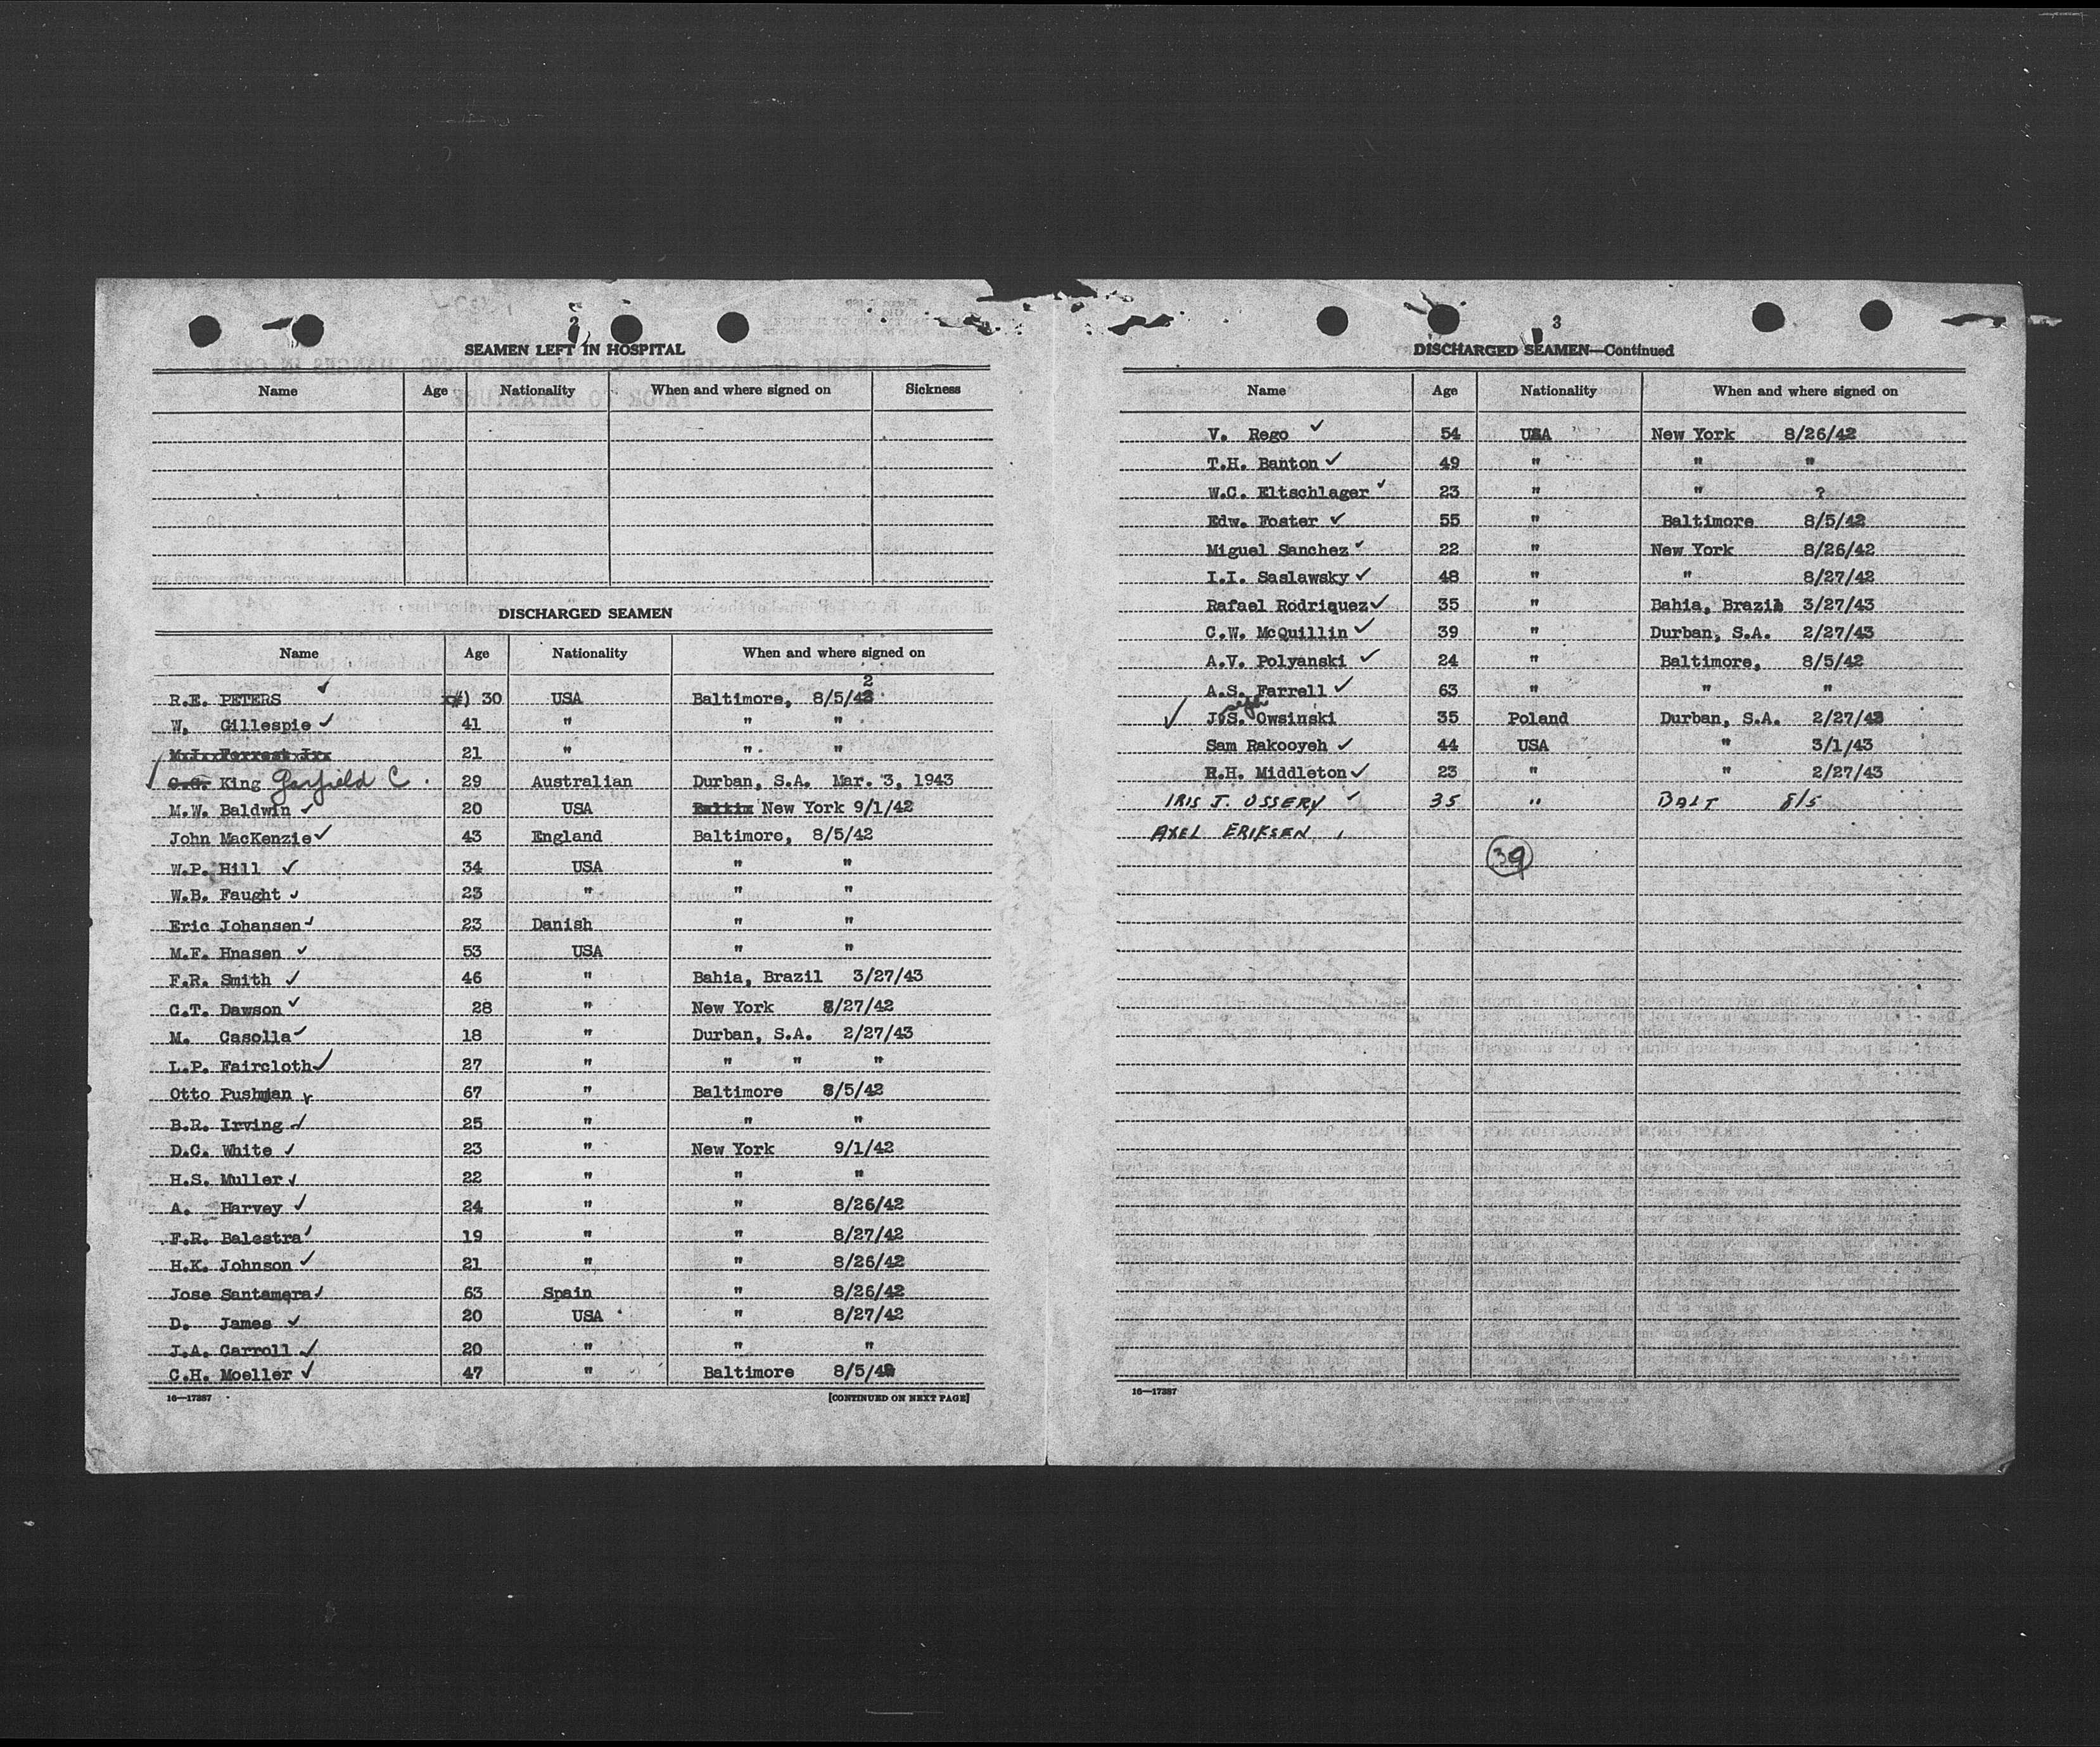 2
SEAMEN LEFT IN HOSPITAL
Name Age Nationality When and where signed on Sickness
DISCHARGED SEAMEN
Name Age Nationality When and where signed on
R.E. PETERS ✓ 30 USA Baltimore, 8/5/42
W, Gillespie ✓ 41 " " "
M.J. Forrest Jr. 21 " " "
✓ C.C. King Garfield C. 29 Australian Durban, S.A. Mar. 3, 1943
M.W. Baldwin ✓ 20 USA New York 9/1/42
John MacKenzie ✓ 43 England Baltimore, 8/5/42
W.P. Hill ✓ 34 USA " "
W.B. Faught ✓ 23 " " "
Eric Johansen ✓ 23 Danish " "
M.F. Hnasen ✓ 53 USA " "
F.R. Smith ✓ 46 " Bahia, Brazil 3/27/43
C.T. Dawson ✓ 28 " New York 8/27/42
M. Casolla ✓ 18 " Durban, S.A. 2/27/43
L.P. Faircloth ✓ 27 " " " "
Otto Pushman ✓ 67 " Baltimore 8/5/42
B.R. Irving ✓ 25 " " "
D.C. White ✓ 23 " New York 9/1/42
H.S. Muller ✓ 22 " " "
A. Harvey ✓ 24 " " 8/26/42
F.R. Balestra ✓ 19 " " 8/27/42
H.K. Johnson ✓ 21 " " 8/26/42
Jose Santamera ✓ 63 Spain " 8/26/42
D. James ✓ 20 USA " 8/27/42
J.A. Carroll ✓ 20 " " "
C.H. Moeller ✓ 47 " Baltimore 8/5/42
16—17387 [CONTINUED ON NEXT PAGE]
3
DISCHARGED SEAMEN—Continued
Name Age Nationality When and where signed on
V. Rego ✓ 54 USA New York 8/26/42
T.H. Banton ✓ 49 " " "
W.C. Eltschlager ✓ 23 " " ?
Edw. Foster ✓ 55 " Baltimore 8/5/42
Miguel Sanchez ✓ 22 " New York 8/26/42
I.I. Saslawsky ✓ 48 " " 8/27/42
Rafael Rodriquez ✓ 35 " Bahia, Brazil 3/27/43
C.W. McQuillin ✓ 39 " Durban, S.A. 2/27/43
A.V. Polyanski ✓ 24 " Baltimore, 8/5/42
A.S. Farrell ✓ 63 " " "
✓ Joseph S. Owsinski 35 Poland Durban, S.A. 2/27/43
Sam Rakooyeh ✓ 44 USA " 3/1/43
R.H. Middleton ✓ 23 " " 2/27/43
IRIS J. OSSERY ✓ 35 " BALT 8/5
AXEL ERIKSEN
39
16—17387